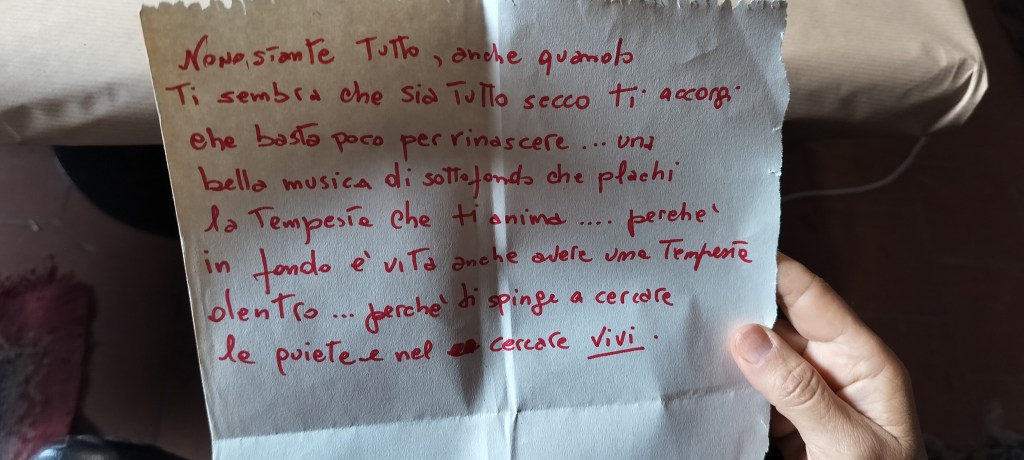 Nonostante Tutto, anche quando
Ti sembra che sia Tutto secco ti accorgi
che basta poco per rinascere ... una
bella musica di sottofondo che plachi
la Tempesta che ti anima .... perche'
in fondo e' vita anche avere una Tempesta
dentro ... perche' ti spinge a cercare
le quiete e nel cercare vivi.